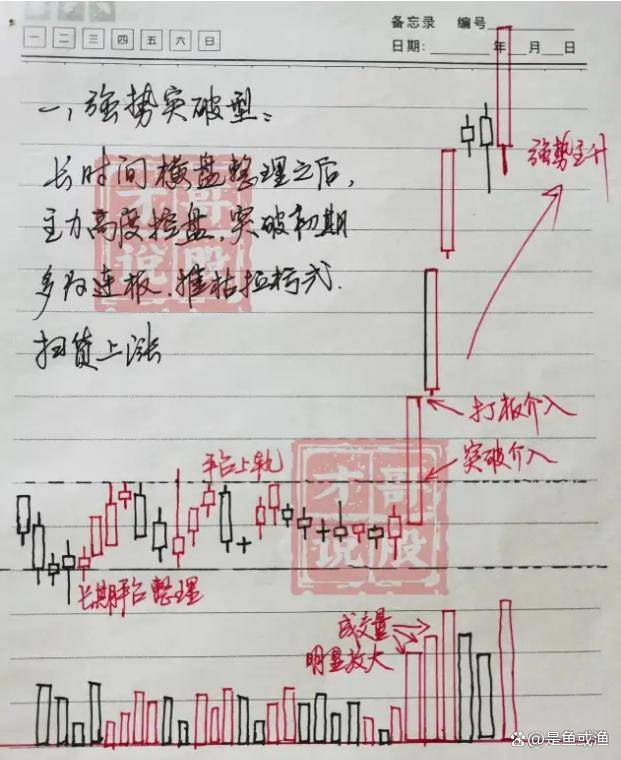 备忘录 编号
一 二 三 四 五 六 日
日期: 年 月 日
一、强势突破型:
长时间横盘整理之后,
主力高度控盘,突破初期
多为连板.摧枯拉朽式.
扫货上涨
强势主升
打板介入
突破介入
平台上轨
长期平台整理
成交量
明显放大
才哥
说股
才哥
说股
@是鱼或渔